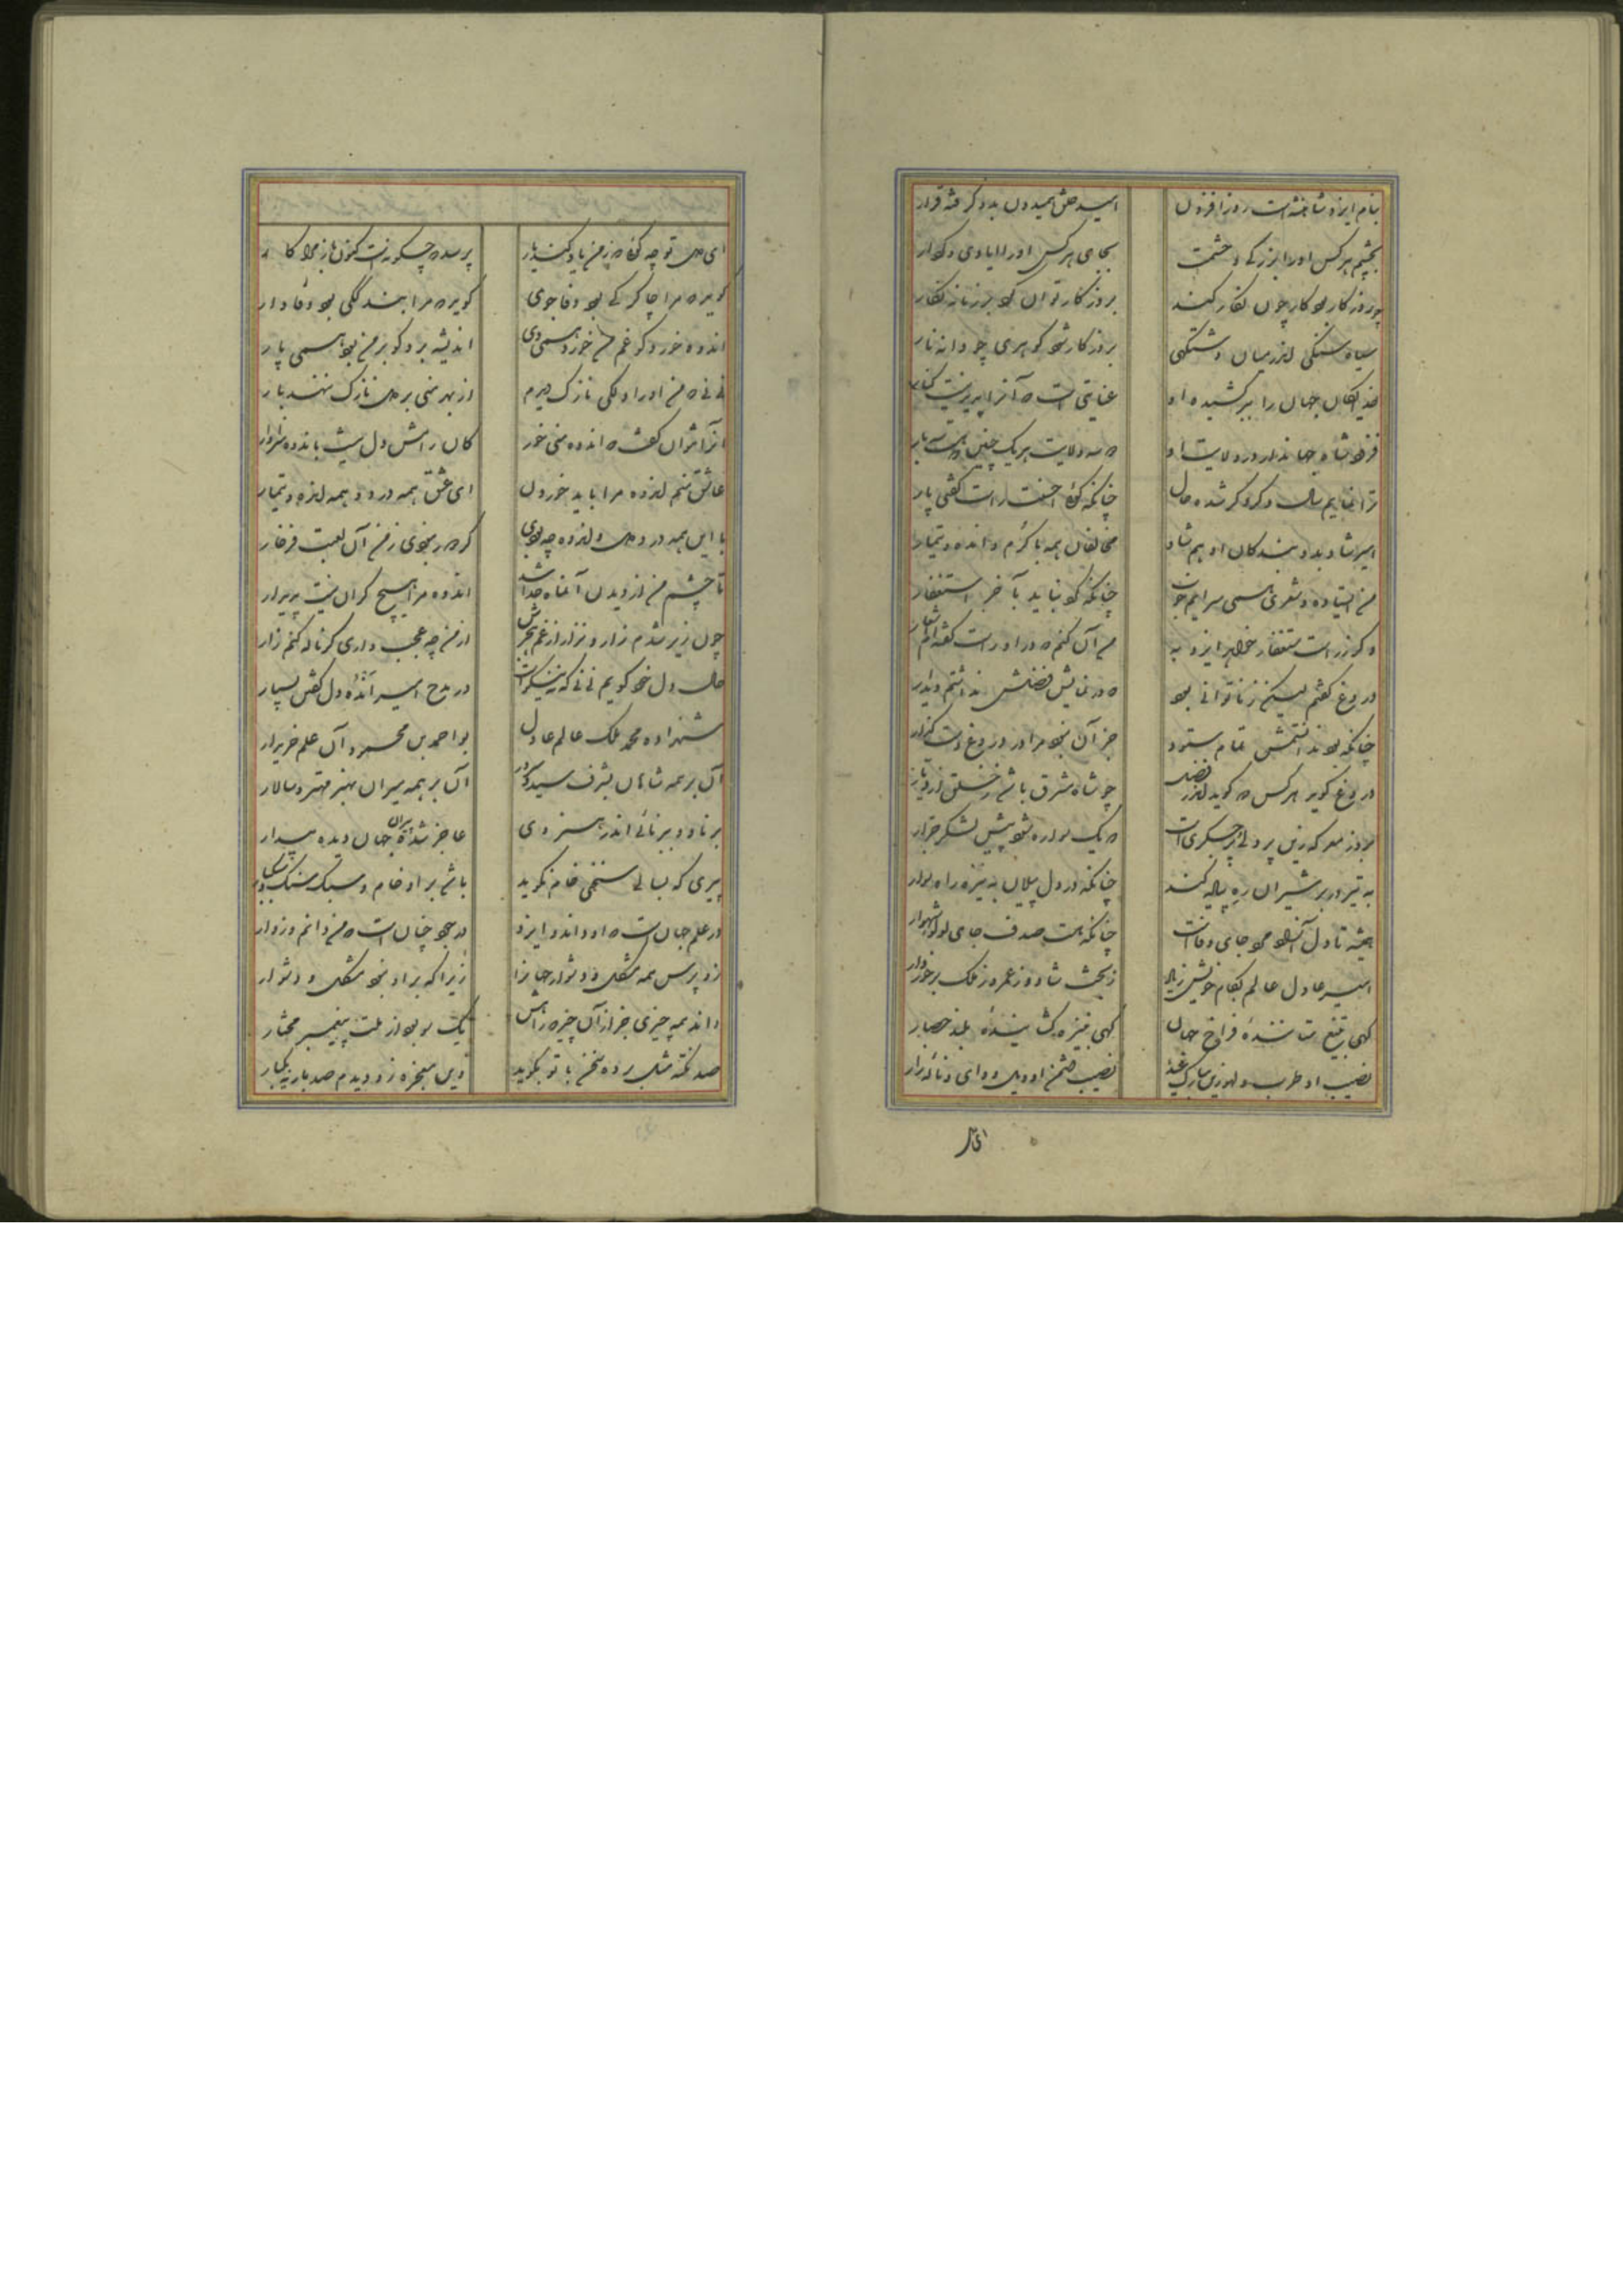 بنام ایزد شاخیست روز افزون امید خلق همیدون بدو گرفته قرار
بچشم هرکس او را بزرگی و حشمت بجای هرکس او را ایادی و کردار
چو روزگار بود کار چون نگار کند بروزگار توان کرد بر زمانه نگار
سیاه سنگی اندر میان بروزگار شود گوهری چو دانه نار
خدایگان جهان را برکشیدن او عنایتی است که آنرا پدید نیست کنار
فزود شاه جهاندار در ولایت او سه ولایت هر یک چنین هست سه بار
ترا نمایم سال دگر شده حال چنانکه گوئی احسنت راست گفتی پار
امیر شاد بدو بندگان او هم شاد مخالفان همه با گرم و انده و تیمار
من ایستاده و شعری همی سرایم خوب چنانکه گر نباید بآخر استغفار
و گر نه راست ستغفار خواهم ایزد به من آن کنم که در او راست گفته ام اشعار
دروغ گفتم لیکن ز ناتوانی بود که در نمایش فضلش نداشتم دیدار
چنانکه بود ندانستمش تمام ستود جز آن نبود مرا در دروغ دست گذار
دروغ گوید هرکس که گوید اندر فضل چو شاه مشرق باشد ز خلق
بروز معرکه زین پر دلی که یک سواره شود پیش لشکر جرار
به تیر در بر شیران ره پیاده کند چنانکه در دل پیلان به نیزه راه سوار
همیشه تا دل آزاده مرد جای وفاست چنانکه هست صدف جای لولو شهوار
امیر عادل عالم بکام خویش زیاد ز بخت شاد و ز عمر و ز ملک برخوردار
گهی بتیغ ستاننده فراخ جهان گهی بنیزه گشاینده بلند حصار
نصیب او طرب و لهو زین مبارک عید نصیب دشمن او ویل و وای و ناله زار
ای دل تو چه گوئی که ز من یاد کند یار پرسد که چگونست کنون یار مرا کار
گوید که مرا چاکر کی بود وفا جوی گوید که مرا بندگکی بود وفادار
انده خورد کو غم من خورد همی دی اندیشه برد کو بر من بود همی پار
نی نی که من او را دلکی نازک دیدم از بهر منی بر دل نازک ننهد بار
آنرا نتوان گفت که اندوه منی خور کان رامش دل نیست باندوه سزاوار
عاشق منم اندوه مرا باید خوردن ای عشق همه دردی و همه انده و تیمار
با این همه درد دل و اندوه چه بودی گر دور نبودی ز من آن لعبت فرخار
تا چشم من از دیدن آن ماه جدا شد اندوه مرا هیچ کران نیست پدیدار
چون زیر شدم زار و نزار از غم هجرش از من چه عجب داری گر ناله کنم زار
حال دل خود گویم نی نی که نه نیکوست در مدح امیر انده دل گفتن بسیار
شهزاده محمد ملک عالم عادل بو احمد بن محمود آن علم خریدار
آن بر همه شاهان بشرف سید و آن بر همه میران بهنر مهتر و سالار
برنا و ببرنائی اندر هنر وی عاجز شده پیران جهان دیده بیدار
پیری که بسالی سخنی خام نگوید باشد بر او خام و سبک سنگ
در علم جهان است که او داند و ایزد در جود چنان است که من دانم و زوار
زو پرس همه مشکل و دشوار جهانرا زیرا که بر او نبود مشکل و دشوار
داند همه چیزی جز از آن چیز که رایش یک سو بود از ملت پیغمبر مختار
صد نکته مشکل سخن با تو بگوید وین معجزه زو دیدم صد بار نه یکبار
ای دل